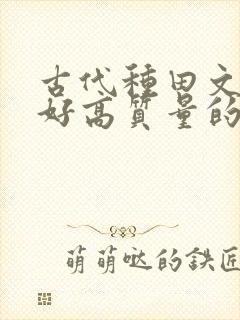 古代種田文
好高質量的
萌萌哒的鉄匠